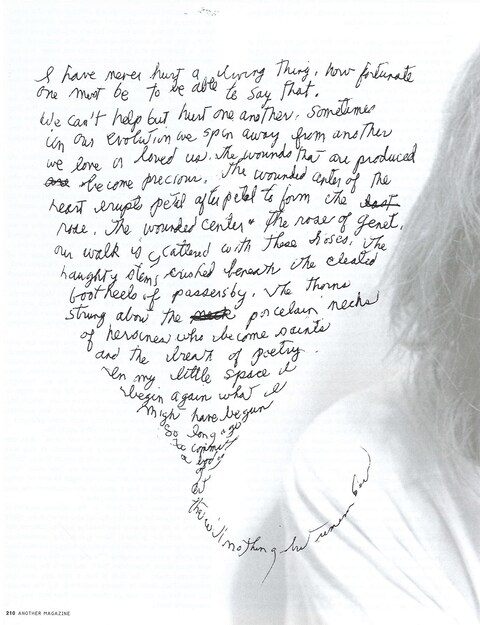 I have never hurt a living thing, how fortunate
one must be to be able to say that.
We can't help but hurt one another. Sometimes
in our evolution we spin away from another
we love or loved us. The wounds that are produced
become precious. The wounded center of the
heart erupts petal after petal to form the
rose. The wounded center + the rose of Genet.
our walk is scattered with these roses. The
haughty stems crushed beneath the cleated
foot heels of passersby. The thorns
strung about the porcelain necks
of heroines who become saints
and the breath of poetry.
In my little space I
begin again what I
might have begun
so long ago
to commit
a body
of
art
that will nothing but remember
210 ANOTHER MAGAZINE